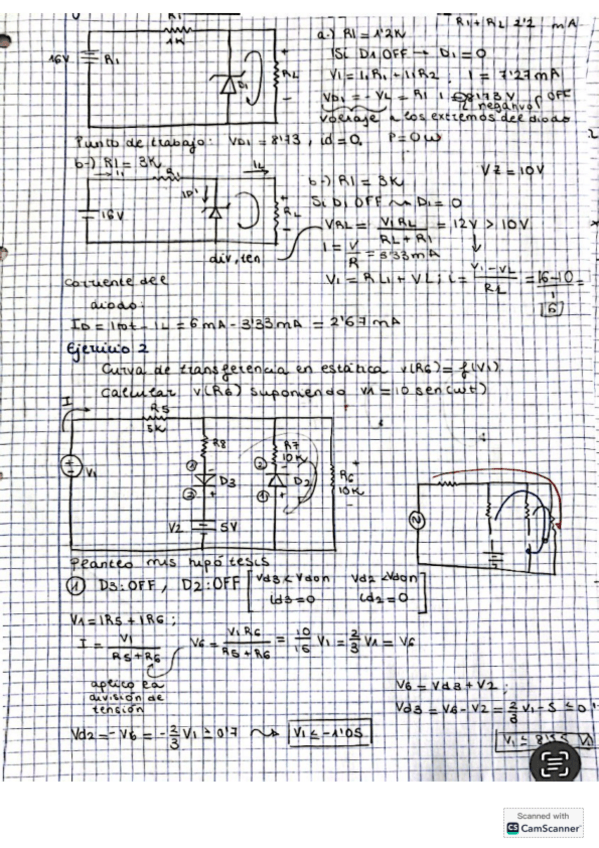 R1
1K
16V
R1
D1
+
RL
-
R1+RL 2'2 mA
a-) R1=1'2K
Si D1 OFF → D1=0
V1=I1R1-I1R2, I=7'27mA
VD1=-VL=R1 I
8'73V
OFF
negativo
voltaje a los extremos del diodo
Punto de trabajo: VD1=8'73, id=0, P=0w
b-) R1=3K
I1
R1
IL
16V
ID1
+
RL
-
div, ten
b-) R1=3K
VZ=10V
Si D1 OFF → D1=0
VRL=V1RL/RL+R1=12V>10V
I=V/R=3'33mA
V1=RL1+VL; i=V1-VL/R1=16-10/
6
corriente del
diodo:
ID=Itot-IL=6mA-3'33mA=2'67mA
Ejercicio 2
Curva de transferencia en estática v(R6)=f(V1)
calcular v(R6) suponiendo v1=10 sen(wt)
I
R5
5K
V1
R8
D3
V2
5V
R7
10K
D2
+
R6
10K
-
Planteo mis hipótesis
① D3:OFF, D2:OFF [Vd3<Vdon Vd2<Vdon
id3=0 id2=0]
V1=IR5+IR6;
I=V1/R5+R6
V6=V1R6/R5+R6=10/15 V1=2/3 V1=V6
aplico la
división de
tensión
V6=Vd3+V2;
Vd3=V6-V2=2/3 V1-5≤0'
Vd2=-V6=-2/3 V1≥0'7 → V1≤-1'05
V1≤8'55 V
Scanned with
CS CamScanner